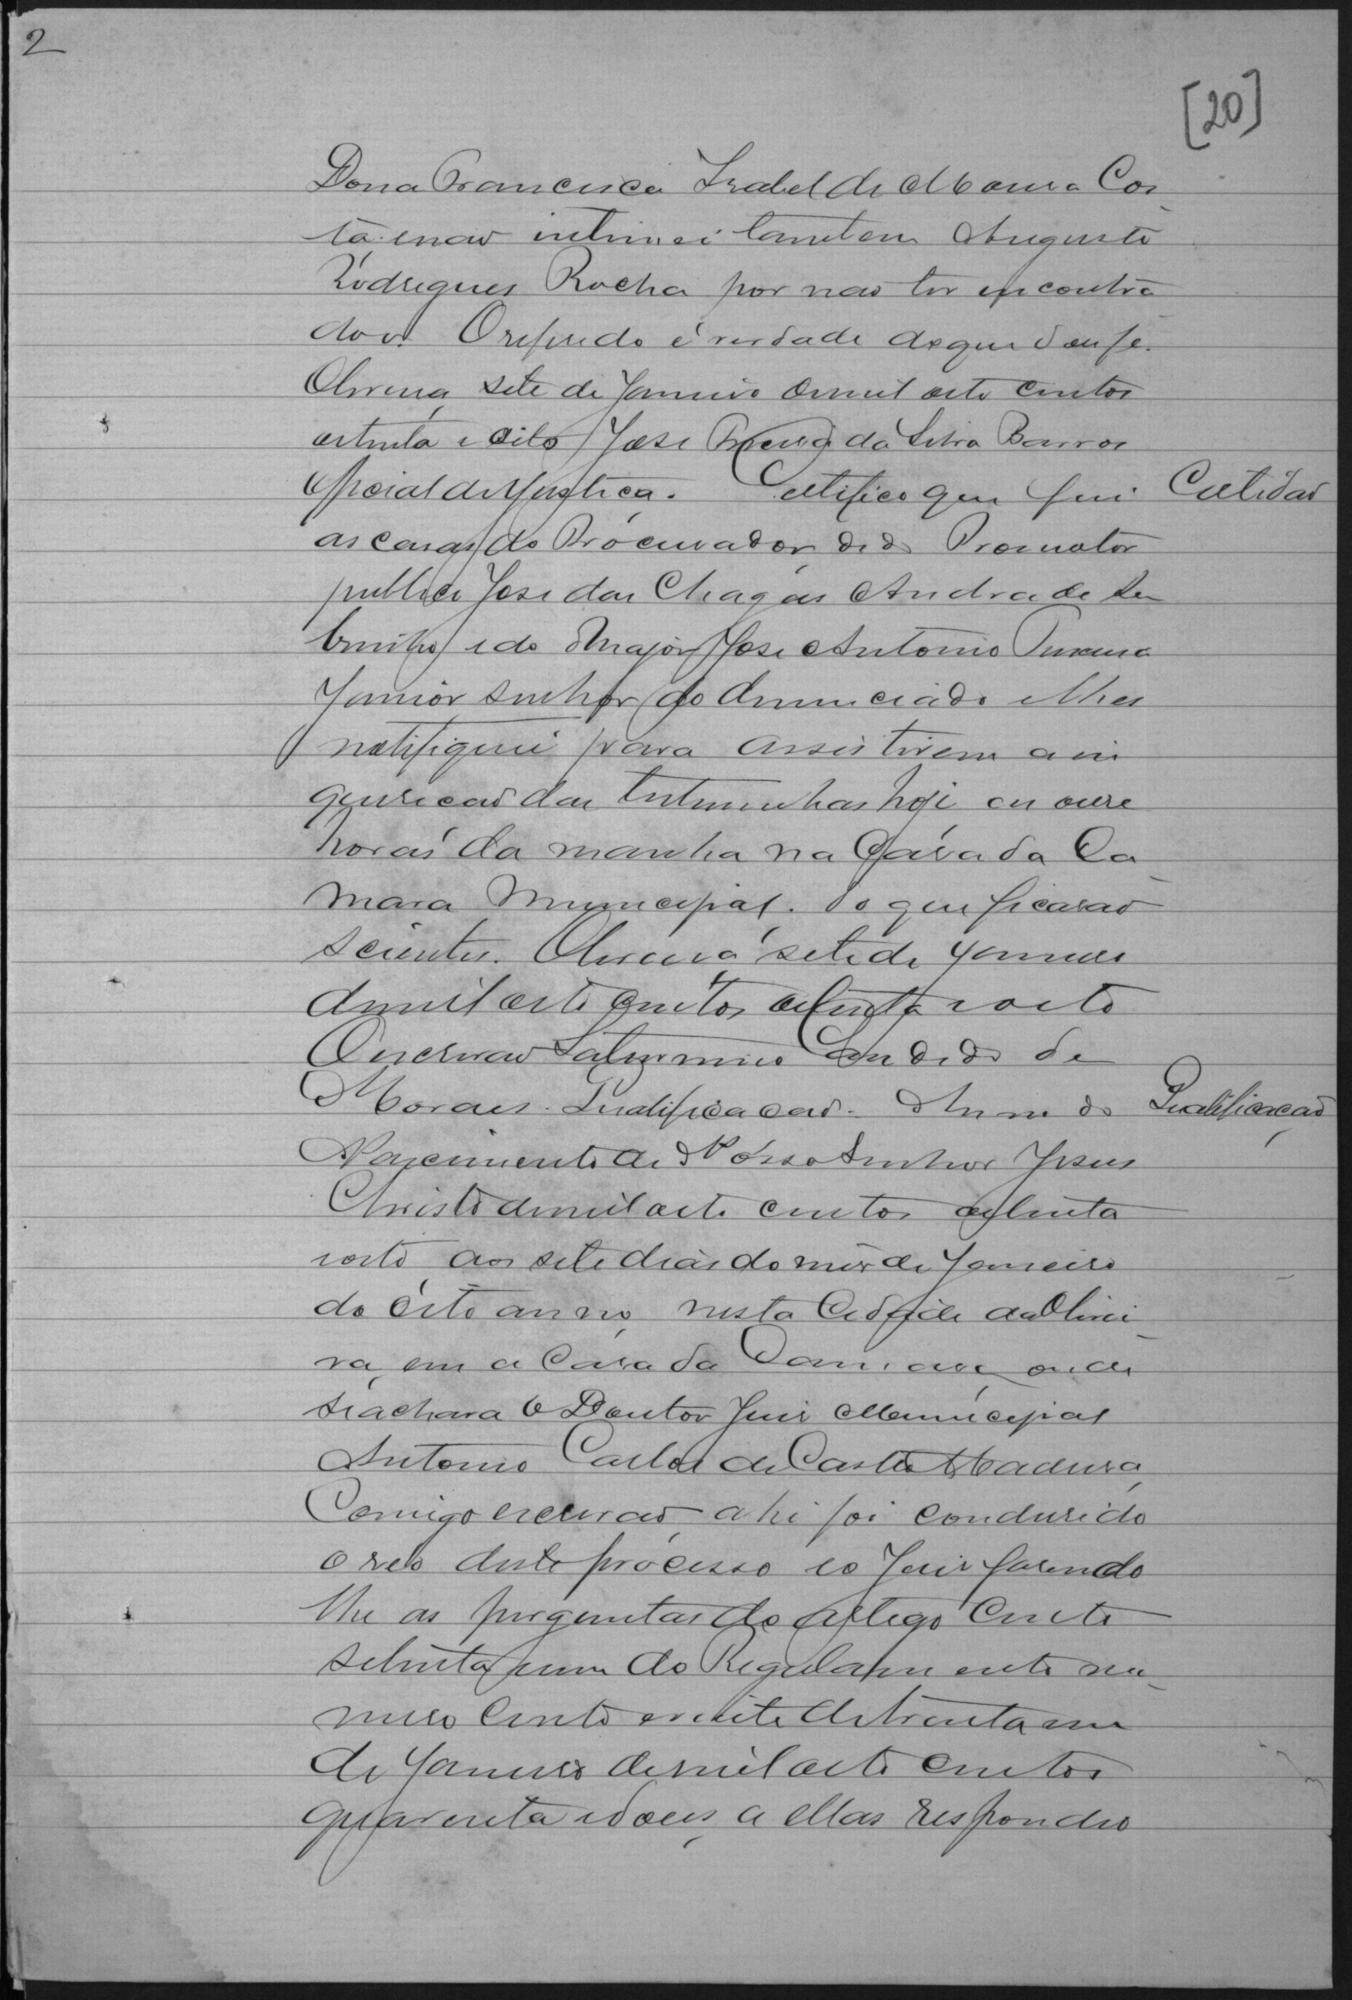 2
[20]
Dona Francisca Izabel de Moura Cos
ta e nao intimei tambem Augusto
Rodrigues Rocha por nao ter encontra
do o. O referido é verdade do que dou fé.
Oliveira, sete de Janeiro de mil oito centos
oitenta e oito José da Silva Barros
Official de Justiça. Certifico que fui
Certidaõ
as casas do Procurador do Promotor
publico José das Chagas Andrade So
brinho e do Major José Antonio
Junior senhor do denunciado e lhes
notifiquei para assistirem a in
quiricaõ das testemunhas hoje as onze
horas da manha na Casa da Ca
mara Municipal. do que ficaraõ
scientes. Oliveira sete de Janeiro
de mil oito centos oitenta e oito
O escrivaõ Saturnino Candido de
Moraes. Qualificacaõ. Anno do
Qualificaçaõ
Nascimento de Nosso Senhor Jesus
Christo de mil oito centos oitenta
e oito aos sete dias do mes de Janeiro
do dito anno, nesta Cidade da Olivei
ra, em a Casa da Camara, onde
se achava o Doutor Juiz Municipal
Antonio Carlos de Castro Madura,
Comigo escrivaõ, ahi foi condusido
o reo deste processo e o Juiz fasendo
lhe as perguntas do artigo Cento
setenta e um do Regulamento nu
mero Cento e vinte de trinta e um
de Janeiro de mil oito centos
quarenta e dous, a ellas respondeo